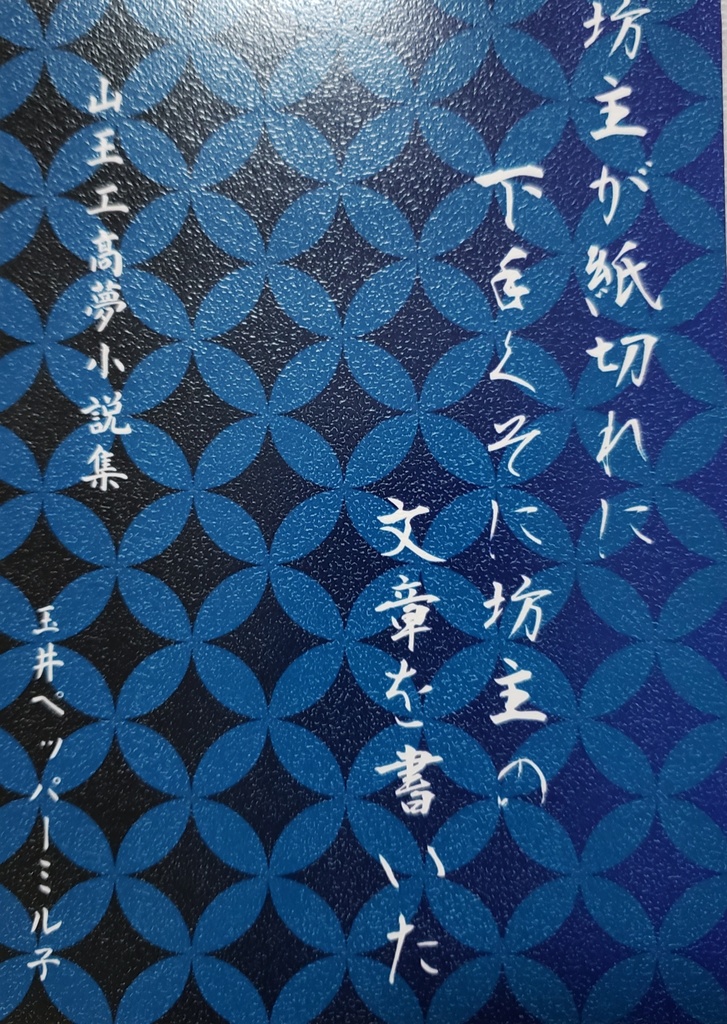 坊主が紙切れに
下手くそに坊主の
文章を書いた
山王工高夢小説集
玉井ペッパーミル子